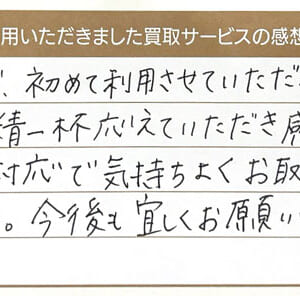 用いただきました買取サービスの感想
、初めて利用させていただ
精一杯応えていただき感
対応で気持ちよくお取
。今後も宜しくお願い